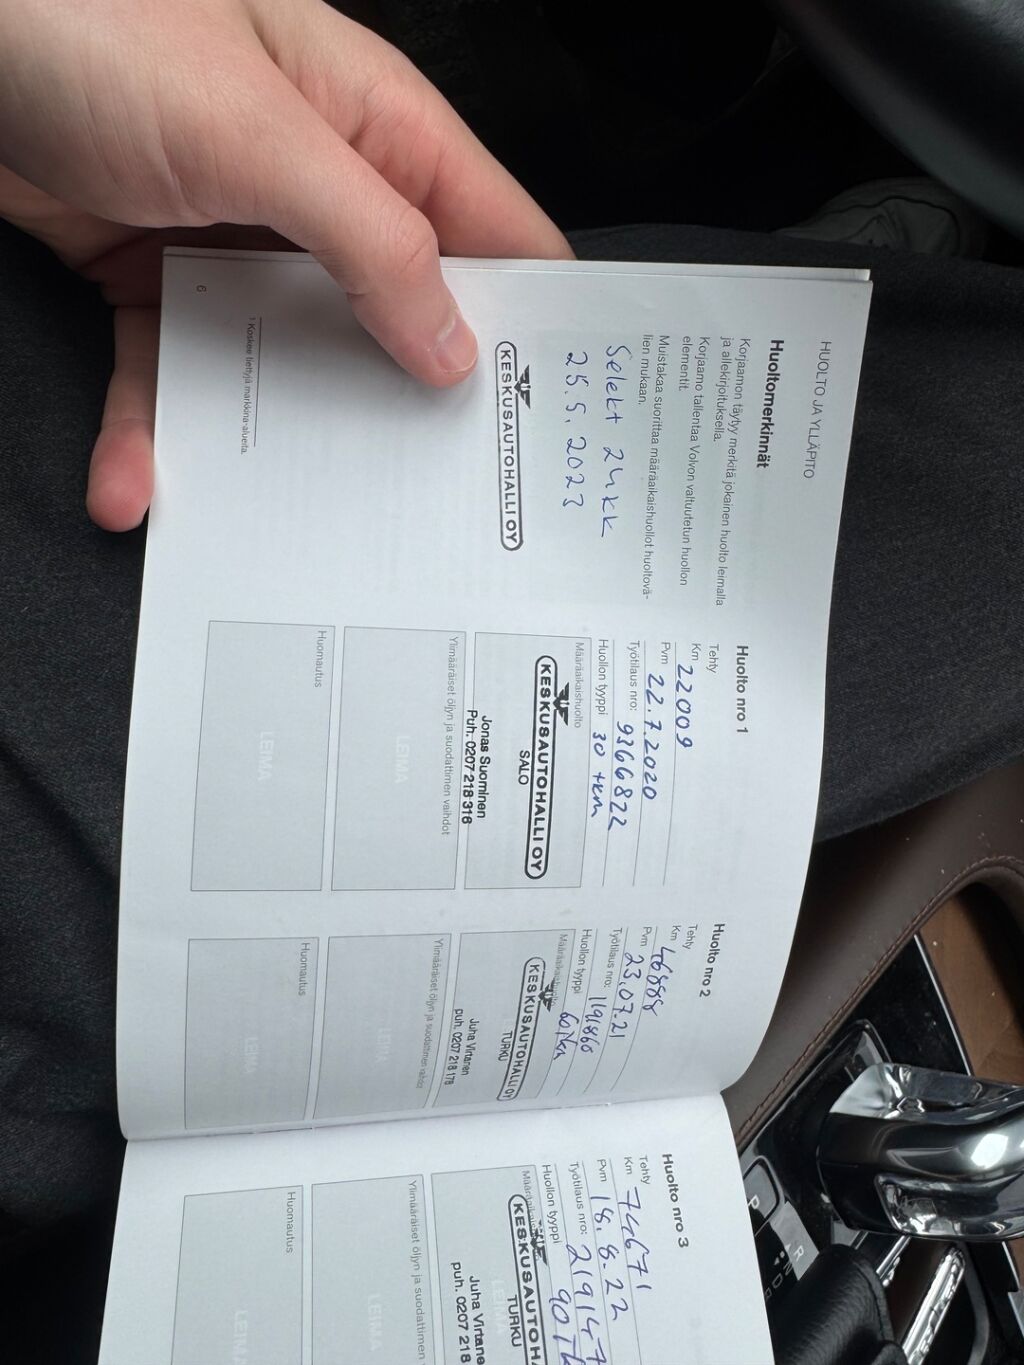 HUOLTO JA YLLÄPITO
Huoltomerkinnät
Korjaamon täytyy merkitä jokainen huolto leimalla
ja allekirjoituksella.
Korjaamo tallentaa Volvon valtuutetun huollon
elementit.
Muistakaa suorittaa määräaikaishuollot huoltovä-
lien mukaan.
Selekt 24kk
25.5.2023
KESKUSAUTOHALLI OY
1 Koskee tiettyjä markkina-alueita.
6
Huolto nro 1
Tehty
Km 22009
Pvm 22.7.2020
Työtilaus nro: 9366822
Huollon tyyppi 30 tkm
Määräaikaishuolto
KESKUSAUTOHALLI OY
SALO
Jonas Suominen
Puh. 0207 218 316
Ylimääräiset öljyn ja suodattimen vaihdot
LEIMA
Huomautus
LEIMA
Huolto nro 2
Tehty
Km 46888
Pvm 23.07.21
Työtilaus nro: 1191860
Huollon tyyppi 60tkm
Määräaikaishuolto
KESKUSAUTOHALLI OY
TURKU
Juha Virtanen
puh. 0207 218 178
Ylimääräiset öljyn ja suodattimen vaihdot
LEIMA
Huomautus
LEIMA
Huolto nro 3
Tehty
Km 74671
Pvm 18.8.22
Työtilaus nro: 219147
Huollon tyyppi
KESKUSAUTOHA
TURKU
Juha Virtane
puh. 0207 218
Ylimääräiset öljyn ja suodattimen
LEIMA
Huomautus
LEIMA
P
R
N
D